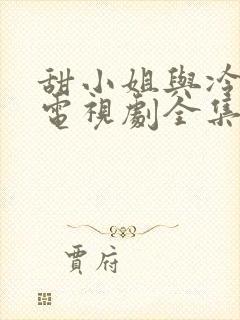 甜小姐與冷
電視劇全集
賈府